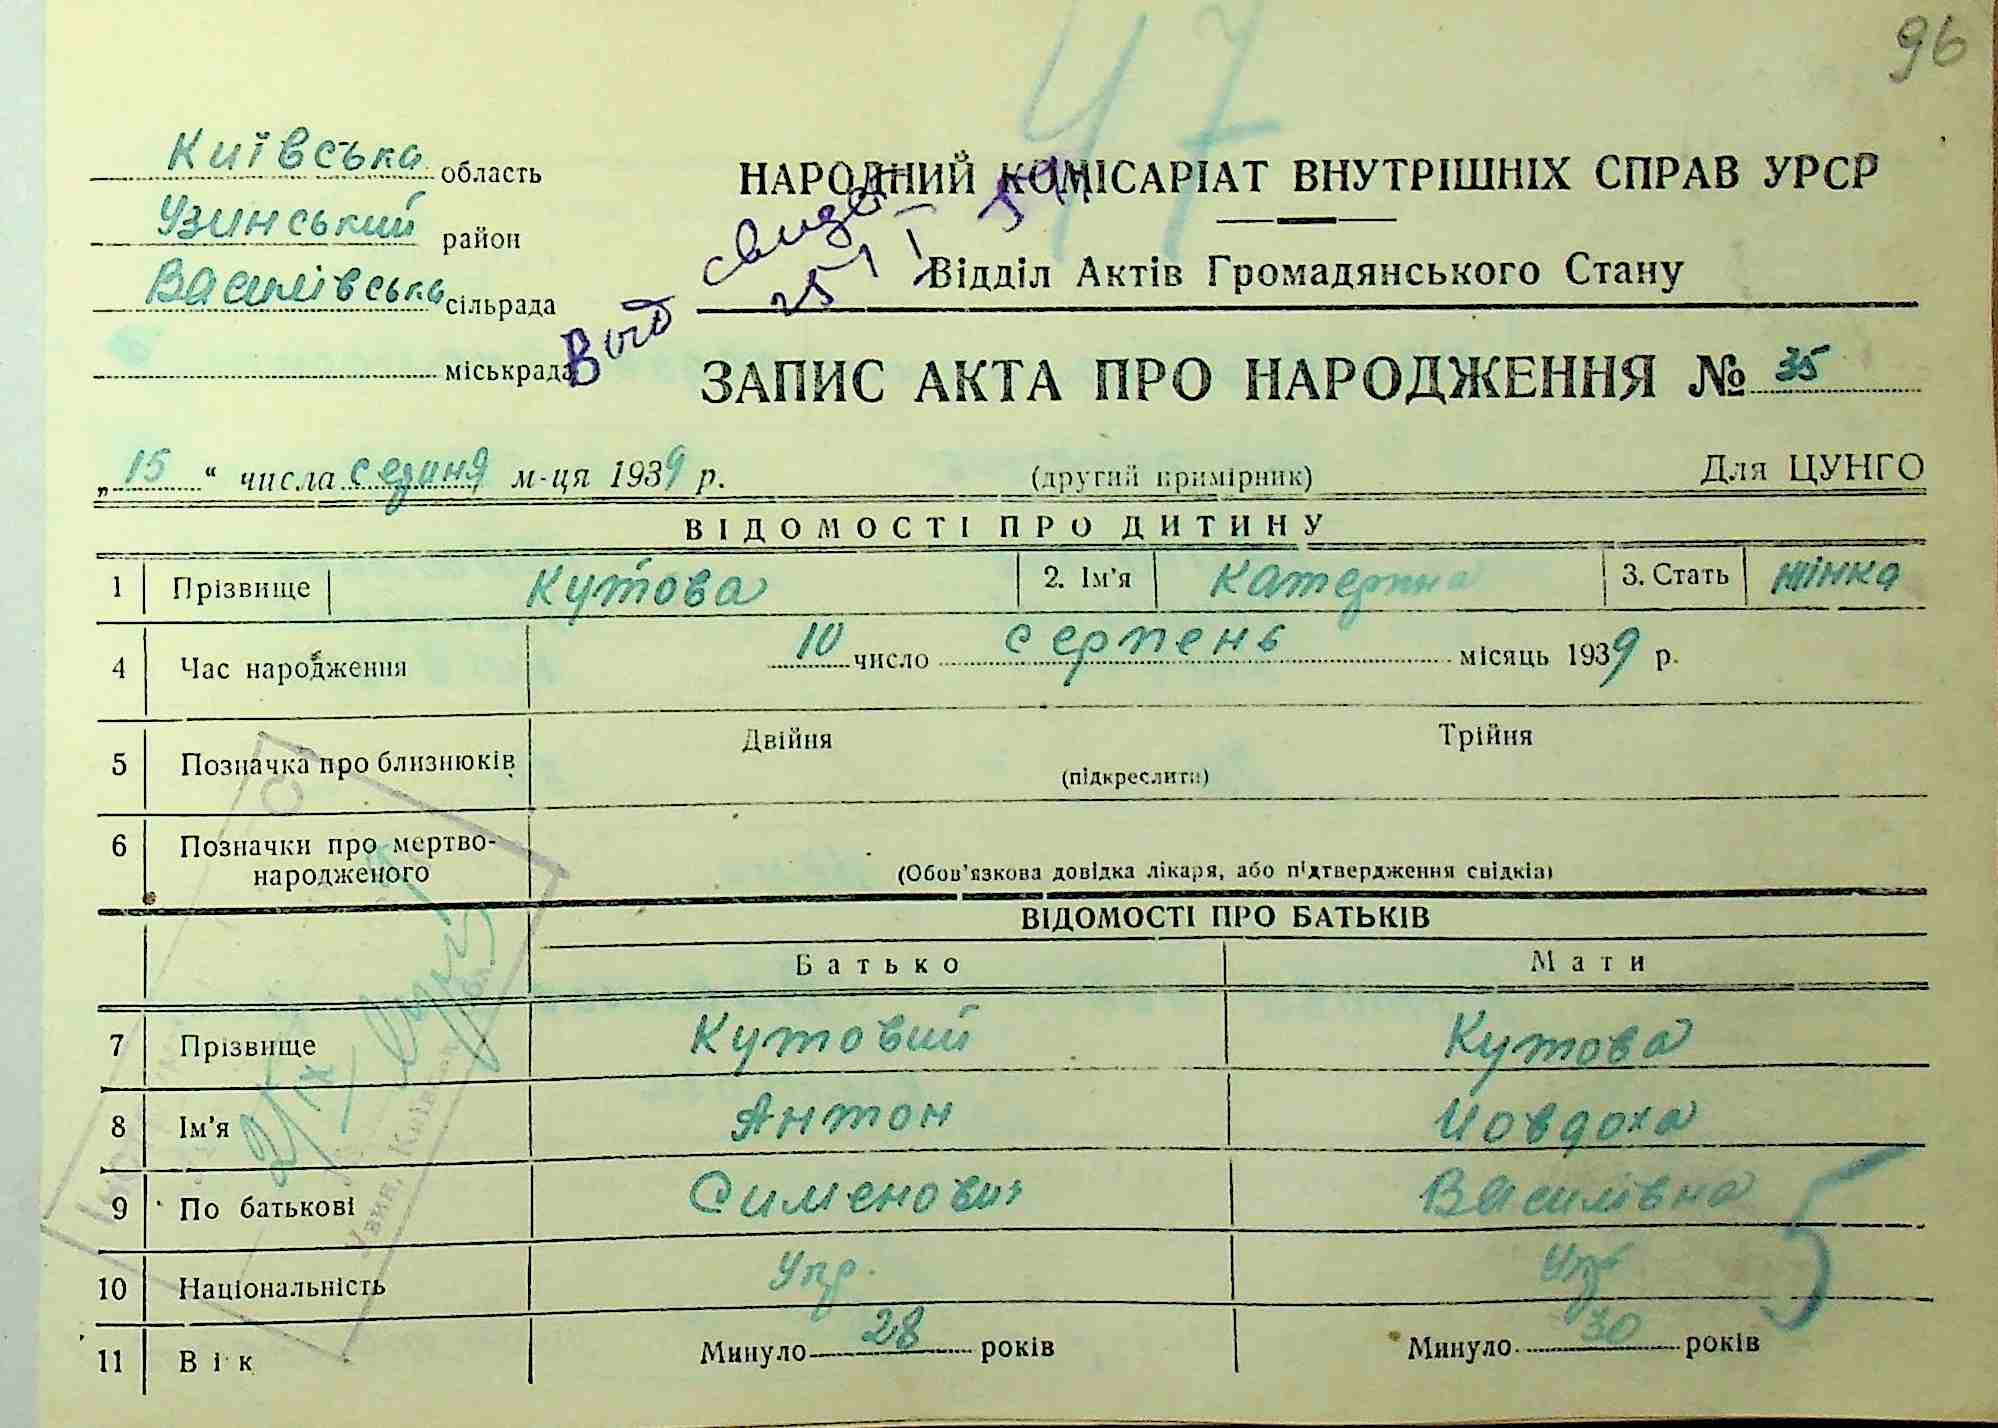 96
47
Київська область
Узинський район
Василівська сільрада
міськрада
НАРОДНИЙ КОМІСАРІАТ ВНУТРІШНІХ СПРАВ УРСР
Відділ Актів Громадянського Стану
ЗАПИС АКТА ПРО НАРОДЖЕННЯ № 35
„15“ числа м-ця 1939 р. (другий примірник) Для ЦУНГО
ВІДОМОСТІ ПРО ДИТИНУ
1 Прізвище Кутова 2. Ім'я Катерина 3. Стать жінка
4 Час народження 10 число серпень місяць 1939 р.
5 Позначка про близнюків Двійня Трійня
(підкреслити)
6 Позначки про мертво-
народженого (Обов'язкова довідка лікаря, або підтвердження свідків)
ВІДОМОСТІ ПРО БАТЬКІВ
Батько Мати
7 Прізвище Кутовий Кутова
8 Ім'я Антон Йовдоха
9 По батькові Сименович Василівна
10 Національність Укр. Укр
11 Вік Минуло 28 років Минуло 30 років
5